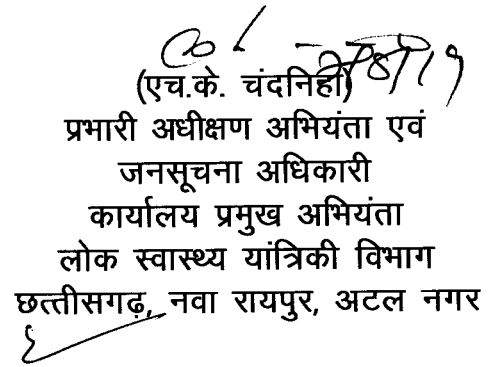 (एच.के. चंदनिहा)
प्रभारी अधीक्षण अभियंता एवं
जनसूचना अधिकारी
कार्यालय प्रमुख अभियंता
लोक स्वास्थ्य यांत्रिकी विभाग
छत्तीसगढ़, नवा रायपुर, अटल नगर